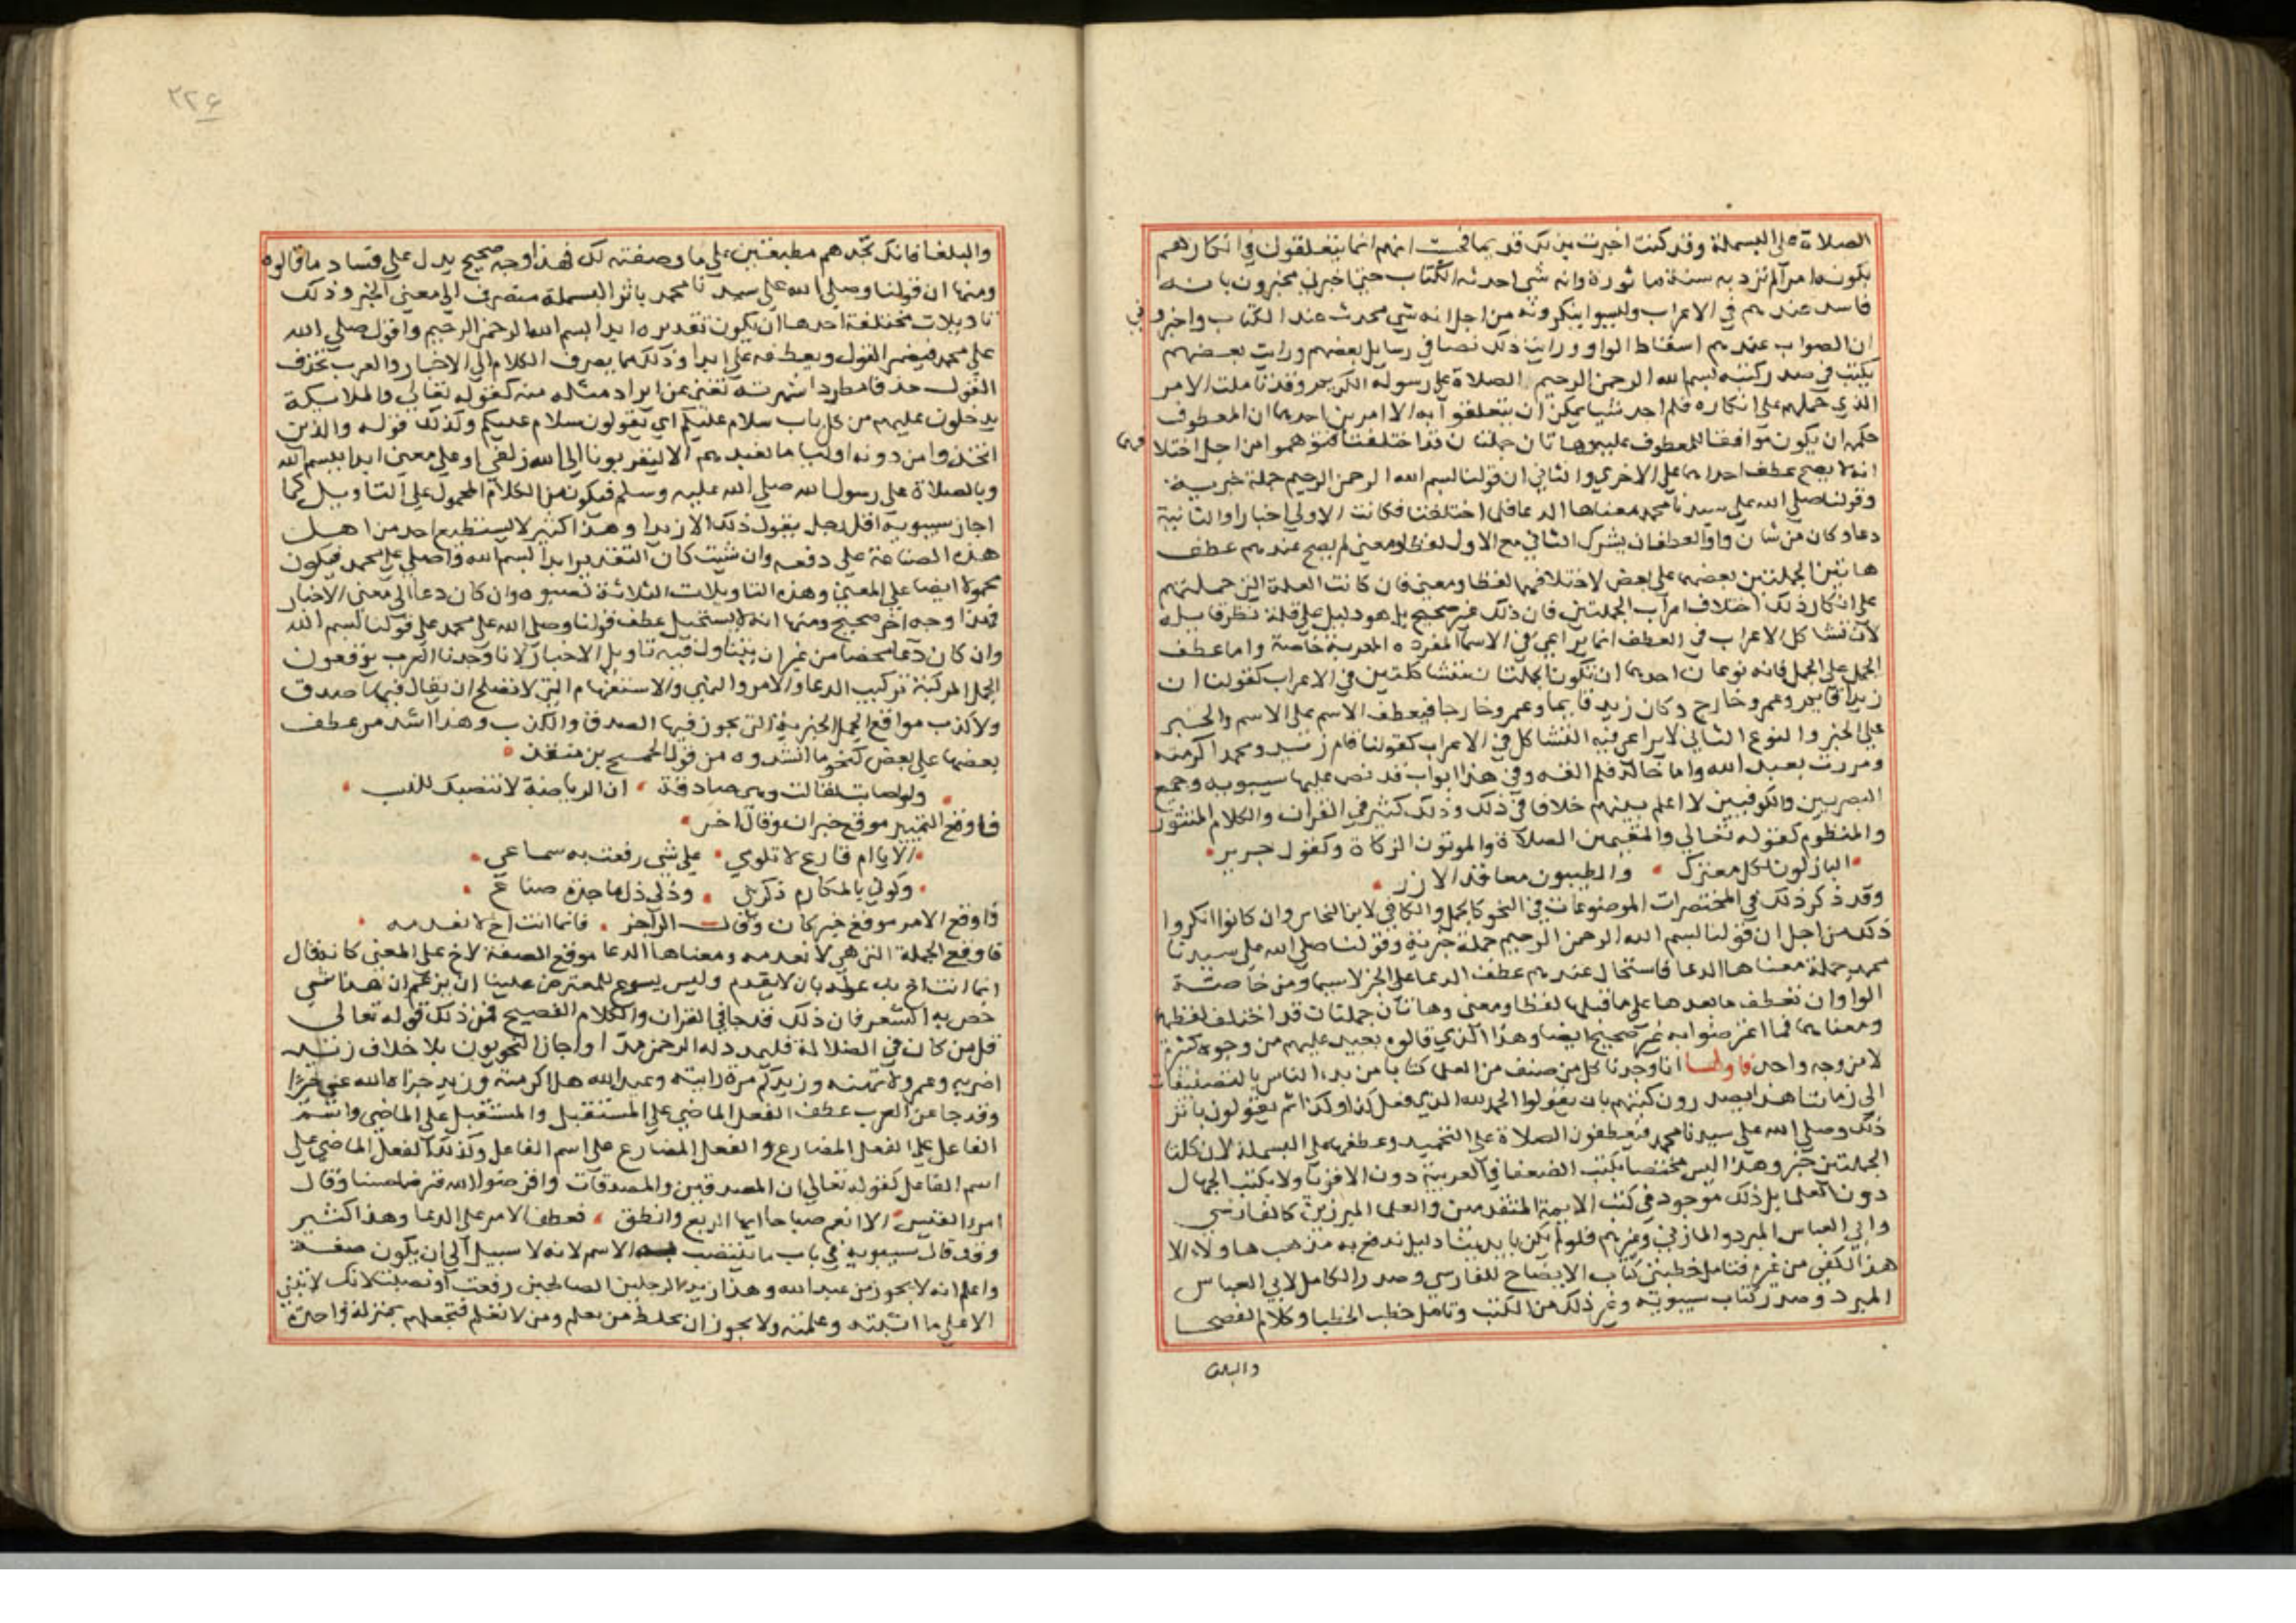 الصلاة على البسملة وقد كنت اخبرت بذلك قديما فحسبت انهم انما يتعلقون في انكارهم
بكونه امرا لم ترد به سنة ماثورة وانه شي احدثه الكتاب حتى اخبرني مخبرون بانه
فاسد عندهم في الاعراب وليسوا ينكرونه من اجل انه شي محدث عند الكتاب واخبروني
ان الصواب عندهم اسقاط الواو ورايت ذلك نصا في رسايل بعضهم ورايت بعضهم
يكتب في صدر كتبه بسم الله الرحمن الرحيم الصلاة على رسوله الكريم وقد تاملت الامر
الذي حملهم على انكاره فلم اجد شيا يمكن ان يتعلقوا به الا امرين احدهما ان المعطوف
حكمه ان يكون موافقا للمعطوف عليه وهاتان جملتان قد اختلفتا فتوهموا من اجل اختلافهما
انه لا يصح عطف احداهما على الاخرى والثاني ان قولنا بسم الله الرحمن الرحيم جملة خبرية
وقولنا صلى الله على سيدنا محمد معناها الدعا فلما اختلفتا فكانت الاولى اخبارا والثانية
دعا وكان من شان واو العطف ان يشرك الثاني مع الاول لفظا ومعنى لم يصح عندهم عطف
هاتين الجملتين بعضهما على بعض لاختلافهما لفظا ومعنى فان كانت العلة التي حملتهم
على انكار ذلك اختلاف اعراب الجملتين فان ذلك غير صحيح بل هو دليل على قلة نظر قايله
لان تشاكل الاعراب في العطف انما يراعى في الاسما المفردة المعربة خاصة واما عطف
الجمل على الجمل فانه نوعان احدهما ان تكون الجملتان متشاكلتين في الاعراب كقولنا ان
زيدا قايم وعمرو خارج وكان زيد قايما وعمرو خارجا فيعطف الاسم على الاسم والخبر
على الخبر والنوع الثاني لا يراعى فيه التشاكل في الاعراب كقولنا قام زيد ومحمد اكرمته
ومررت بعبد الله واما خالد فلم القه وفي هذا ابواب قد نص عليها سيبويه وجميع
البصريين والكوفيين لا اعلم بينهم خلافا في ذلك وذلك كثير في القران والكلام المنثور
والمنظوم كقوله تعالى والمقيمين الصلاة والموتون الزكاة وكقول جرير
النازلون بكل معترك والطيبون معاقد الازر
وقد ذكر ذلك في المختصرات الموضوعات في النحو كالجمل والكافي لابن النحاس وان كانوا انكروا
ذلك من اجل ان قولنا بسم الله الرحمن الرحيم جملة خبرية وقولنا صلى الله على سيدنا
محمد جملة معناها الدعا فاستحال عندهم عطف الدعا على الخبر لا سيما ومن خاصة
الواو ان تعطف ما بعدها على ما قبلها لفظا ومعنى وهاتان جملتان قد اختلف لفظهما
ومعناهما فما اعترضوا به غير صحيح ايضا وهذا الذي قالوه يجيب عليهم من وجوه كثيرة
لا من وجه واحد فاولها انا وجدنا كل من صنف من العلما كتابا من بدء الناس بالتصنيفات
الى زماننا هذا يصدرون كتبهم بان يقولوا الحمد لله الذي فعل كذا وكذا ثم يقولون باثر
ذلك وصلى الله على سيدنا محمد فيعطفون الصلاة على التحميد وعطفها على البسملة لان كلتا
الجملتين خبر وهذا ليس مختصا بكتب الضعفا في العربية دون الاقويا ولا بكتب الجهال
دون العلما بل ذلك موجود في كتب الايمة المتقدمين والعلما المبرزين كالفارسي
وابي العباس المبرد والمازني وغيرهم فلو لم يكن بايدينا دليل ندفع به مذهب هاولاء الا
هذا لكفى من غيره فتامل خطبتي كتاب الايضاح للفارسي وصدر الكامل لابي العباس
المبرد وصدر كتاب سيبويه وغير ذلك من الكتب وتامل خطب الخطبا وكلام الفصحا
والبلغا
٢٢٤
والبلغا فانك تجدهم مطبقين على ما وصفته لك فهذا وجه صحيح يدل على فساد ما قالوه
ومنها ان قولنا وصلى الله على سيدنا محمد باثر البسملة منصرف الى معنى الخبر وذلك
تاويلات مختلفة احدها ان يكون تقديره ابدا بسم الله الرحمن الرحيم واقول صلى الله
على محمد فيضمر القول ويعطفه على ابدا وذلك مما يصرف الكلام الى الاخبار والعرب تحذف
القول حذفا مطردا شهرته تغني عن ايراد مثله منه كقوله تعالى والملايكة
يدخلون عليهم من كل باب سلام عليكم اي يقولون سلام عليكم وكذلك قوله والذين
اتخذوا من دونه اوليا ما نعبدهم الا ليقربونا الى الله زلفى او على معنى ابدا ببسم الله
وبالصلاة على رسول الله صلى الله عليه وسلم فيكون من الكلام المحمول على التاويل كما
اجاز سيبويه اقل رجل يقول ذلك الا زيدا وهذا كثير لا يستطيع احد من اهل
هذه الصناعة على دفعه وان شيت كان التقدير ابدا بسم الله واصلي على محمد فيكون
محمولا ايضا على المعنى وهذه التاويلات الثلاثة تصيره وان كان دعا الى معنى الاخبار
فهذا وجه اخر صحيح ومنها انه لا يستحيل عطف قولنا وصلى الله على محمد على قولنا بسم الله
وان كان دعا محضا من غير ان يتناول فيه تاويل الاخبار لانا وجدنا العرب يوقعون
الجمل المركبة تركيب الدعا والامر والنهي والاستفهام التي لا تصلح ان يقال فيها صدق
ولا كذب مواقع الجمل الخبرية التي يجوز فيها الصدق والكذب وهذا اشد من عطف
بعضها على بعض كنحو ما انشدوه من قول الجميح بن منقذ
ولو اصابت لقالت وهي صادقة ان الرياضة لا تنصبك للشيب
فاوقع النهي موقع خبر ان وقال اخر
الا يا ام قارع لا تلومي على شي رفعت به سماعي
وكوني بالمكارم ذكريني ودلي دل ماجدة صناع
فاوقع الامر موقع خبر كان وقال الراجز فانما انت اخ لا نعدمه
فاوقع الجملة التي هي لا نعدمه ومعناها الدعا موقع الصفة لاخ على المعنى كانه قال
انما انت اخ يدعى له بان لا يعدم وليس يسوغ للمعترض علينا ان يزعم ان هذا شي
خص به الشعر فان ذلك قد جا في القران والكلام الفصيح فمن ذلك قوله تعالى
قل من كان في الضلالة فليمدد له الرحمن مدا واجاز النحويون بلا خلاف زيد
اضربه وعمرو لا تهنه وزيد كم مرة رايته وعبد الله هل اكرمته وزيد جزاه الله عني خيرا
وقد جا عن العرب عطف الفعل الماضي على المستقبل والمستقبل على الماضي واسم
الفاعل على الفعل المضارع والفعل المضارع على اسم الفاعل وكذلك الفعل الماضي على
اسم الفاعل كقوله تعالى ان المصدقين والمصدقات واقرضوا الله قرضا حسنا وقال
امرؤ القيس الا انعم صباحا ايها الربع وانطق فعطف الامر على الدعا وهذا كثير
وقد قال سيبويه في باب ما ينتصب الاسم لانه لا سبيل الى ان يكون صفة
واعلم انه لا يجوز من عبد الله وهذا زيد الرجلين الصالحين رفعت او نصبت لانك لا تثني
الا على ما اثبته وعلمته ولا يجوز ان تخلط من يعلم ومن لا تعلم فتجعلهم بمنزلة واحدة